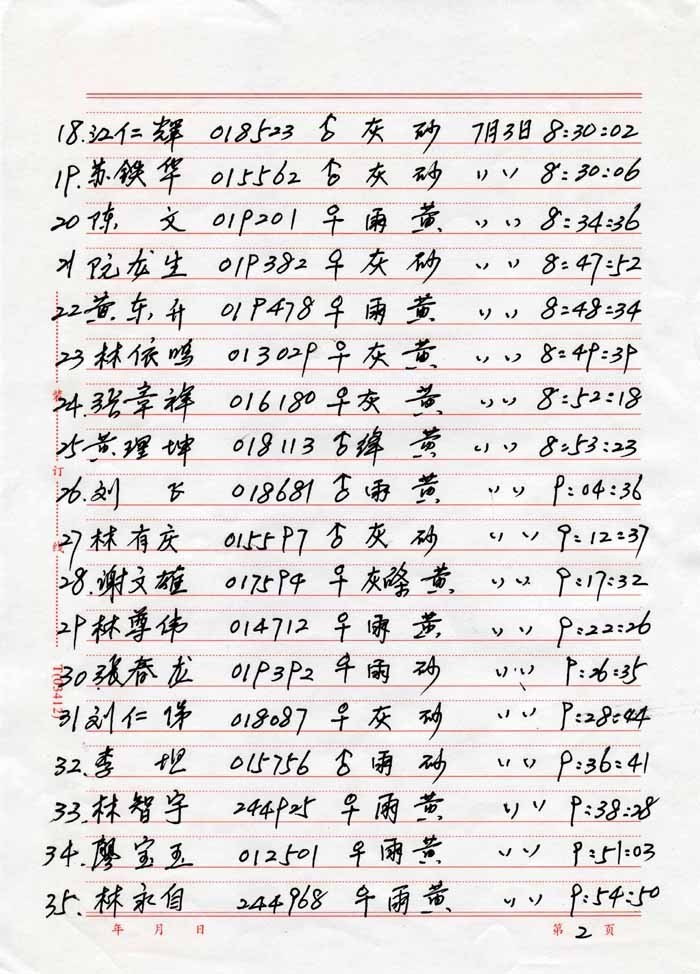 18.江仁辉 018523 ♂ 灰 砂 7月3日 8:30:02
19.苏铁华 015562 ♂ 灰 砂 〃 8:30:06
20 陈 文 019201 ♀ 雨 黄 〃 8:34:36
21 阮龙生 019382 ♀ 灰 砂 〃 8:47:52
22 黄东升 019478 ♀ 雨 黄 〃 8:48:34
23 林依鸣 013029 ♀ 灰 黄 〃 8:49:39
24.张章祥 016180 ♀ 灰 黄 〃 8:52:18
25 黄理坤 018113 ♂ 绛 黄 〃 8:53:23
26.刘 飞 018681 ♂ 雨 黄 〃 9:04:36
27 林有庆 015597 ♂ 灰 砂 〃 9:12:37
28.谢文雄 017594 ♀ 灰 黄 〃 9:17:32
29 林尊伟 014712 ♀ 雨 黄 〃 9:22:26
30 张春龙 019392 ♀ 雨 砂 〃 9:26:35
31 刘仁俤 018087 ♀ 灰 砂 〃 9:28:44
32.李 坦 015756 ♂ 雨 砂 〃 9:36:41
33.林智宇 244925 ♀ 雨 黄 〃 9:38:28
34.廖宝玉 012501 ♀ 雨 黄 〃 9:51:03
35.林永自 244968 ♀ 雨 黄 〃 9:54:50
装
订
线
T(03412)
年 月 日 第 2 页